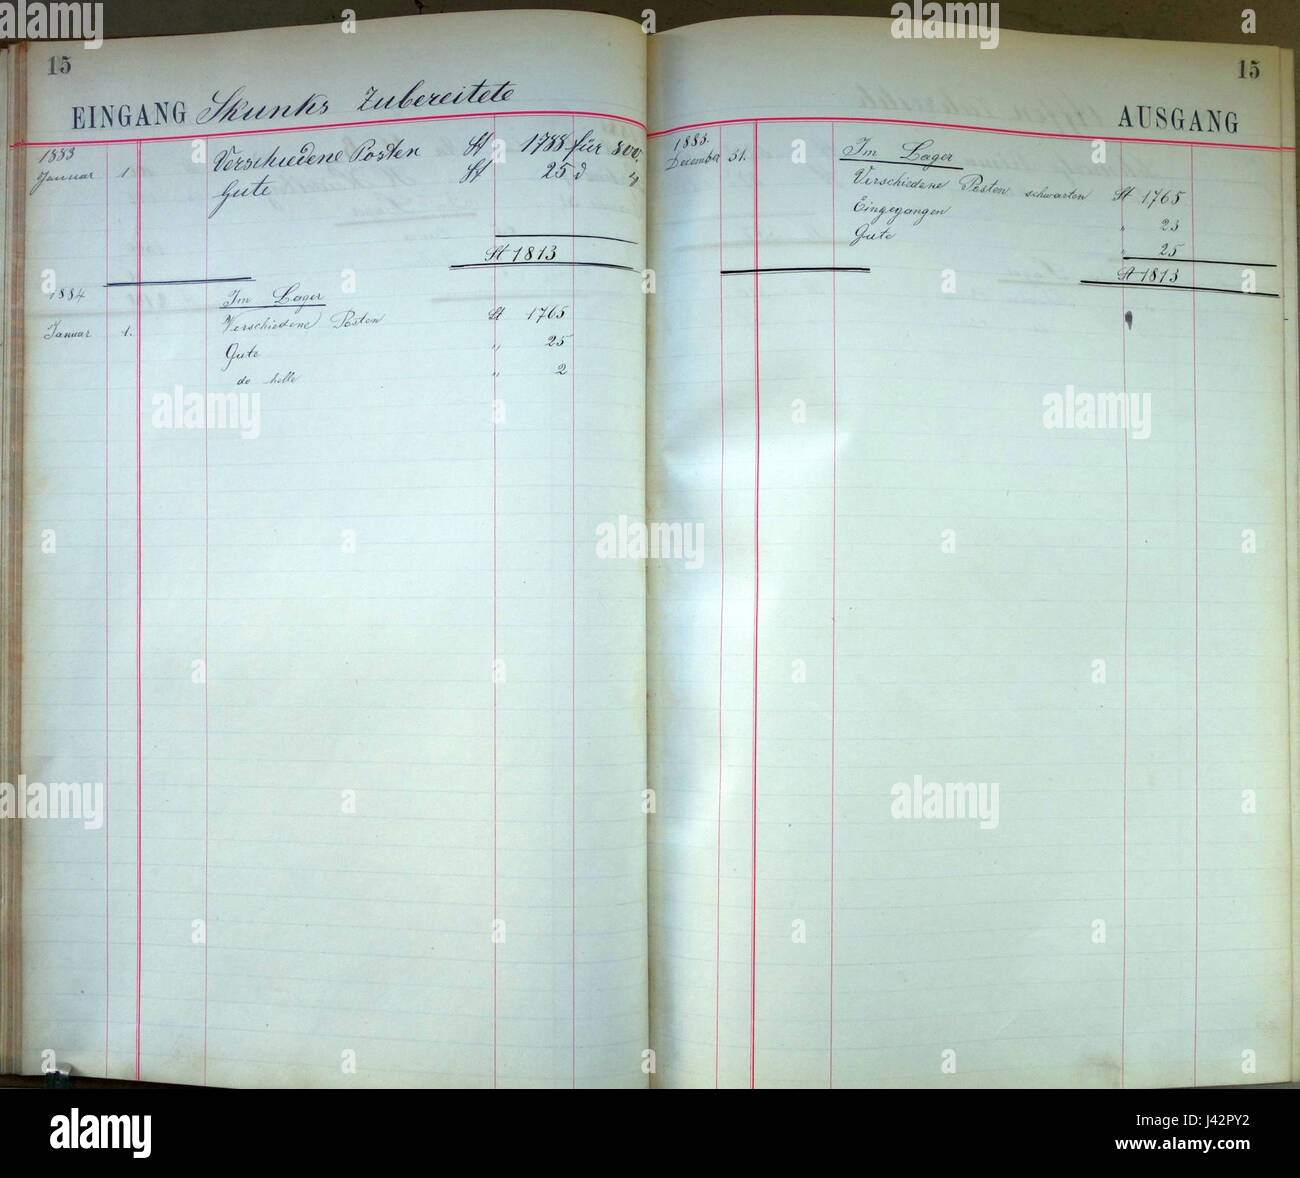 15
EINGANG Skunks Zubereitete
1883
Januar 1. Verschiedene Posten St 1788 für 800.
Gute St 25 d
St 1813
1884 Im Lager
Januar 1. Verschiedene Posten St 1765
Gute " 25
do helle " 2
15
AUSGANG
1883.
December 31. Im Lager
Verschiedene Posten schwarten St 1765
Eingegangen " 23
Gute " 25
St 1813
alamy
a
alamy
Image ID: J42PY2
www.alamy.com